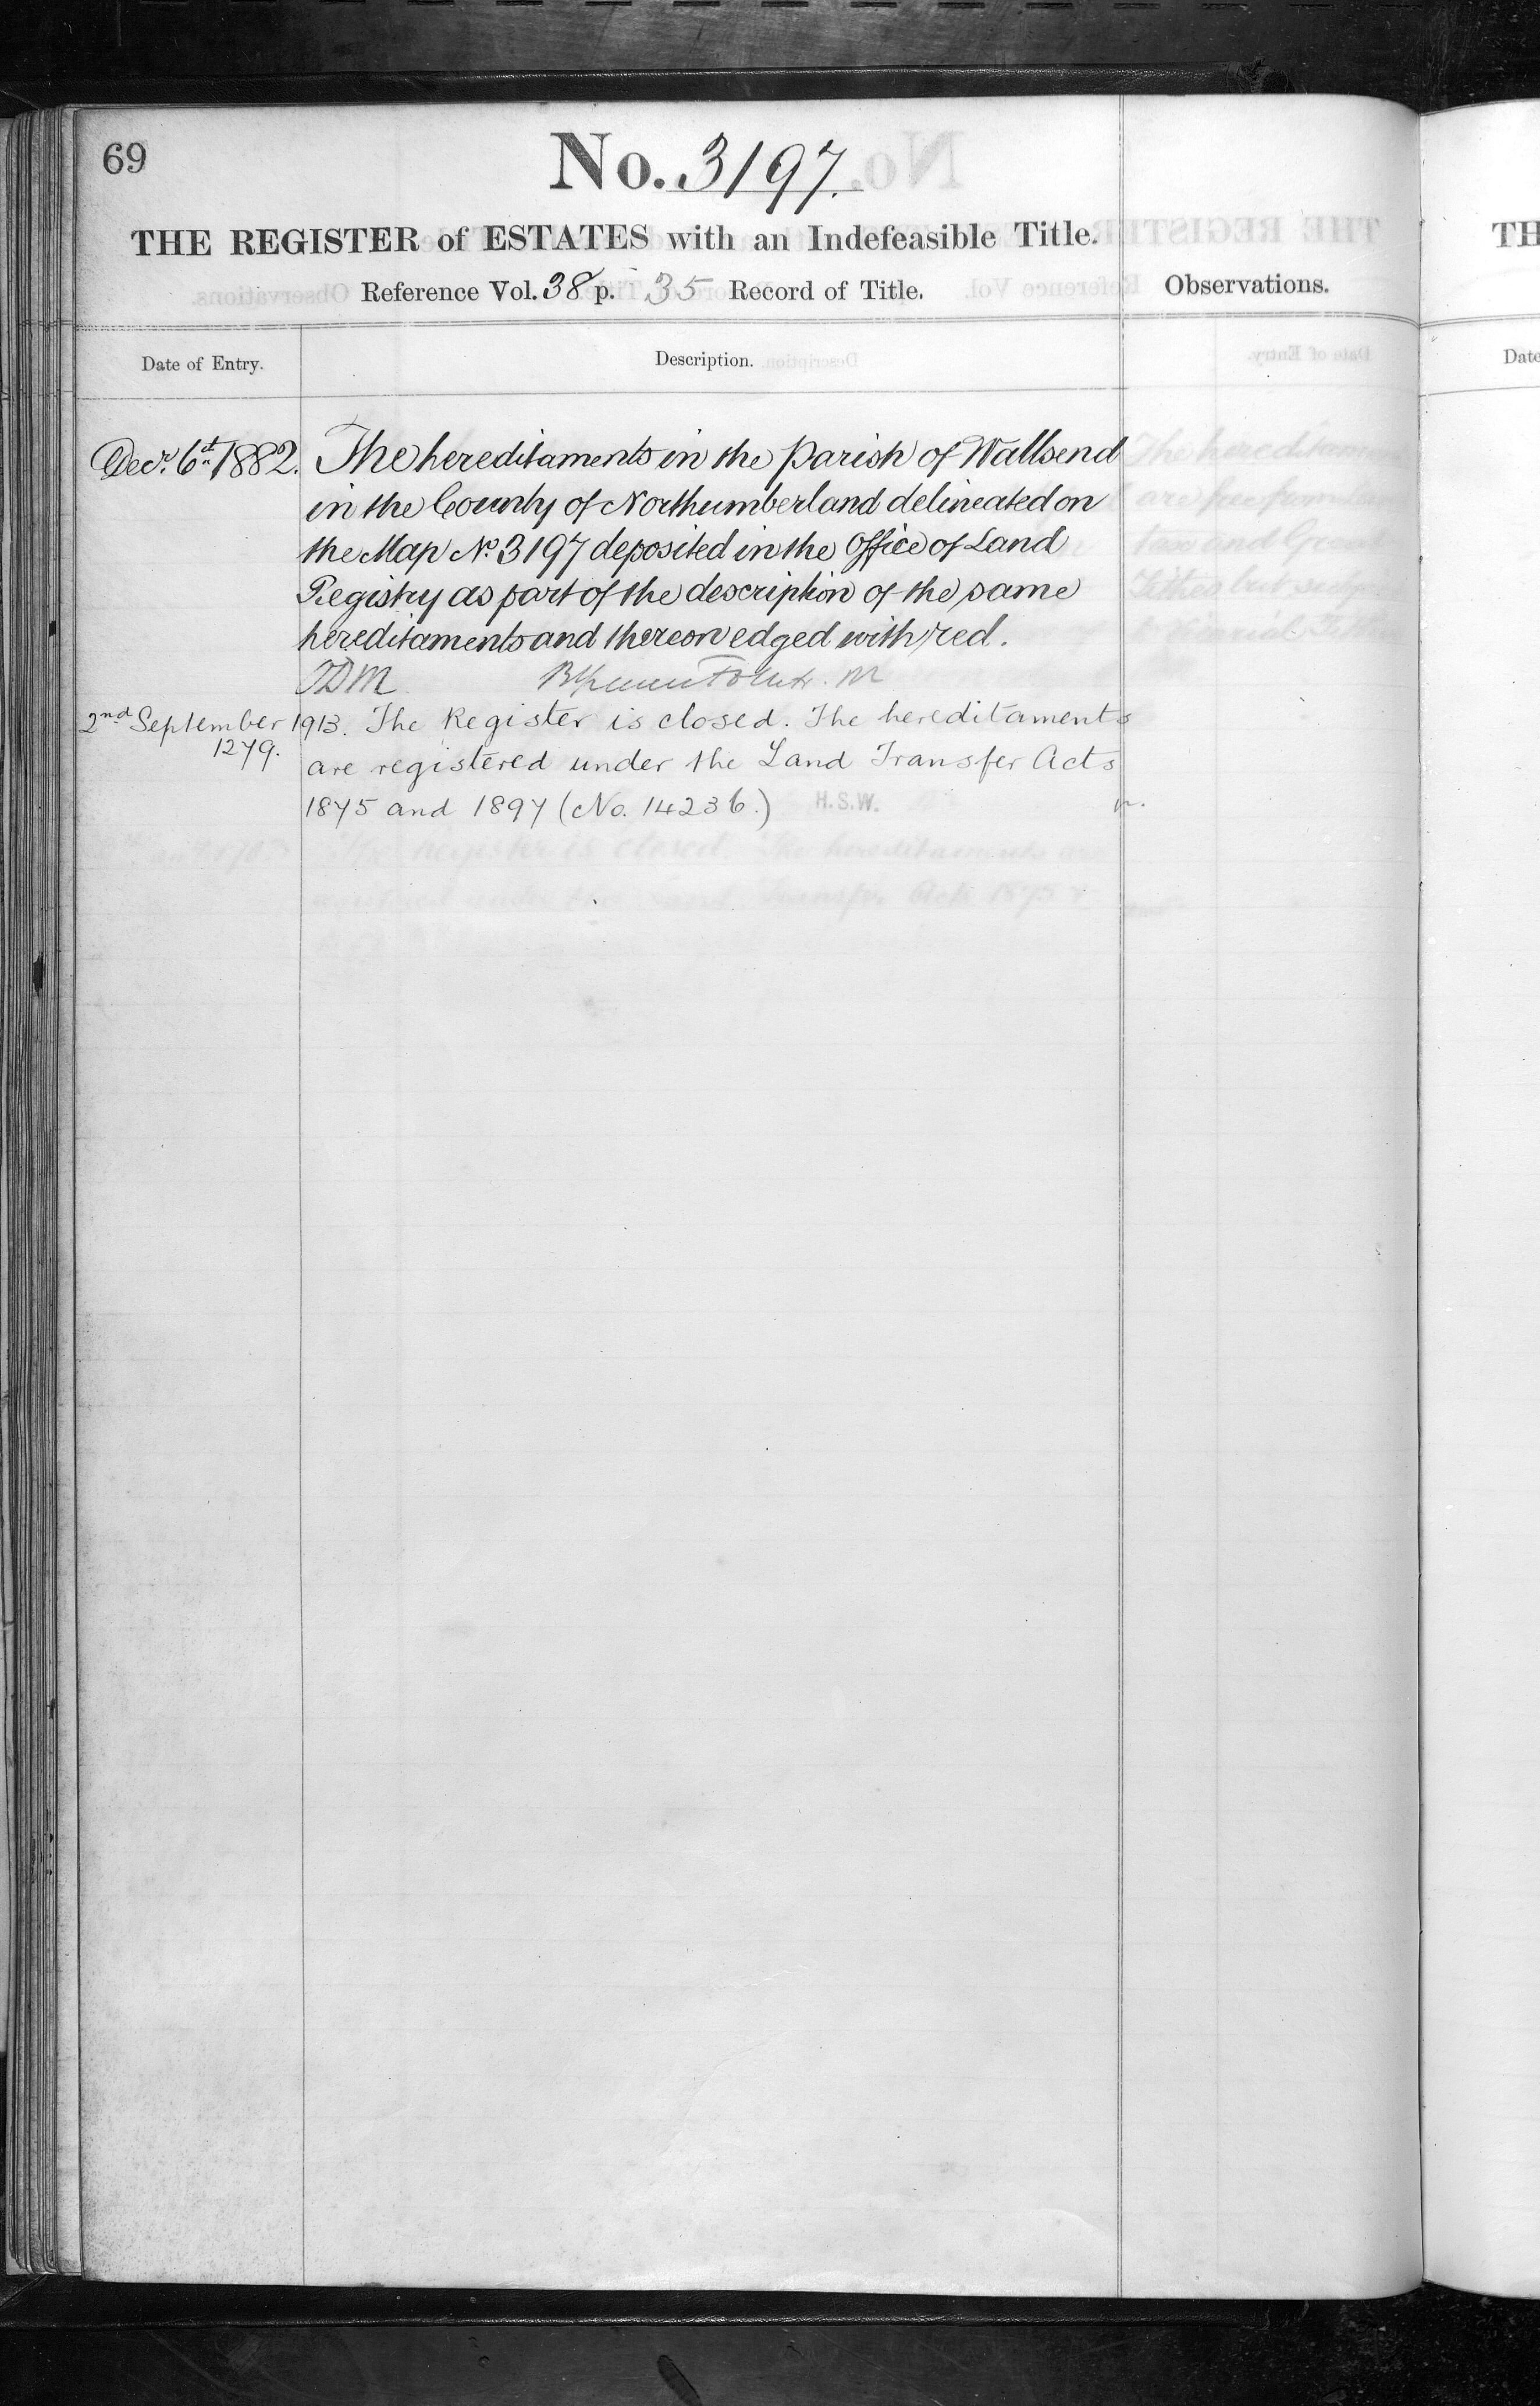 69
No. 3197.
THE REGISTER of ESTATES with an Indefeasible Title.
Reference Vol. 38 p. 35 Record of Title.
Observations.
Date of Entry.
Description.
Decr. 6th 1882. The hereditaments in the Parish of Wallsend
in the County of Northumberland delineated on
the Map No. 3197 deposited in the Office of Land
Registry as part of the description of the same
hereditaments and thereon edged with red.
TDM
2nd September 1913. The Register is closed. The hereditaments
1279.
are registered under the Land Transfer Acts
1875 and 1897 (No. 14236.) H.S.W.
TH
Date